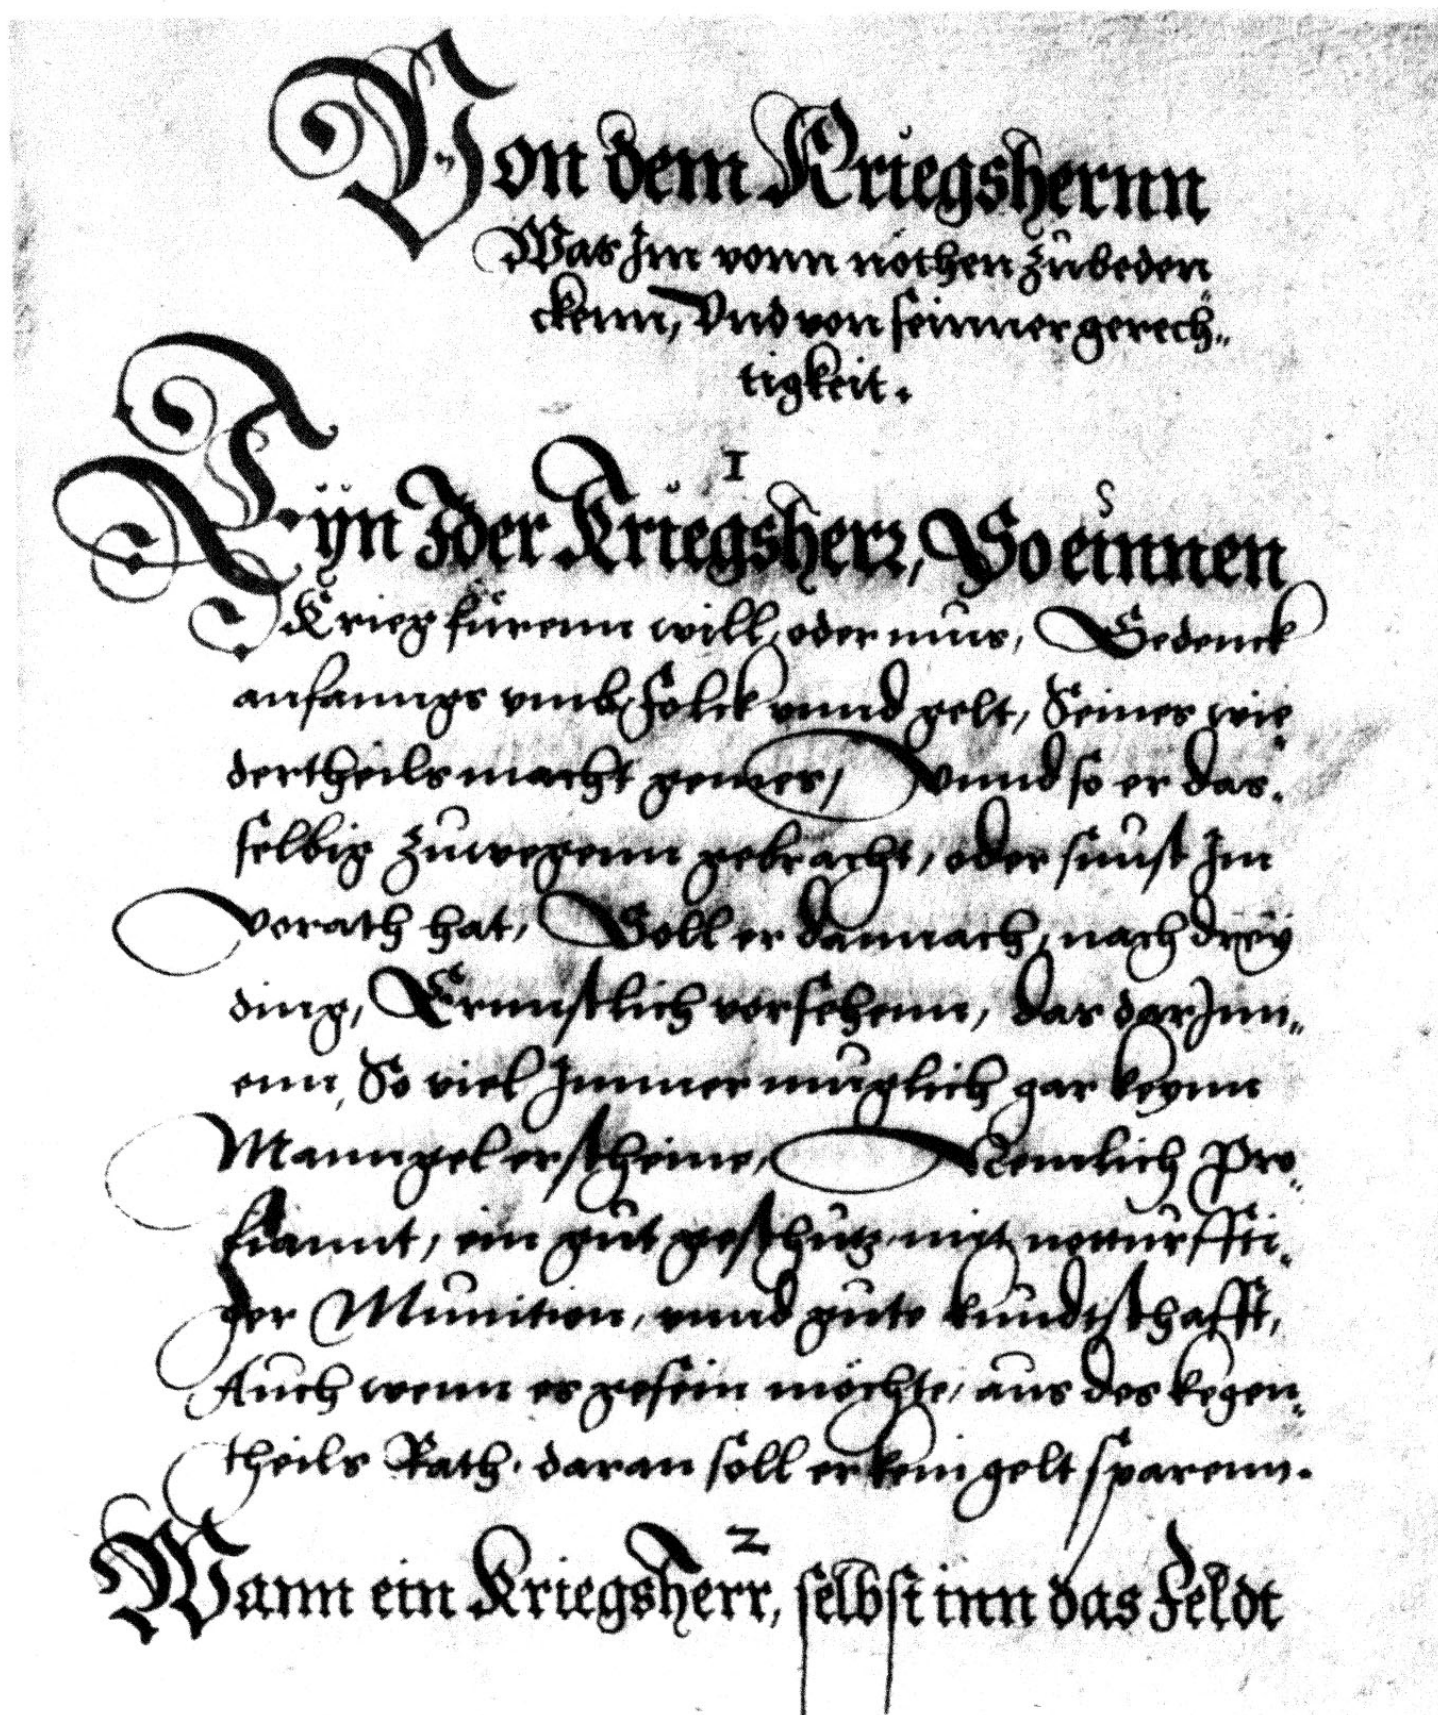 Von dem Kriegshernn
Was Im vonn nöthen zubeden
ckenn, Vnd von seinner gerech„
tigkeit.
1
Eÿn Jder Kriegsherr, So einnen
Krieg fürenn will, oder mus, Gedenck
anfanngs vmb Folck vnnd gelt, Seines wie
dertheils macht gemes, Vnnd so er das„
selbig zuwegenn gebracht, oder sunst Im
vorath hat, Soll er dannach, nach dreÿ
ding, Ernnstlich vorsehenn, das darJnn„
enn, So viel Immer müglich gar keynn
Manngel erscheine, Nemlich Pro„
fiannt, ein gut geschütz mit notturffti„
ger Munition, vnnd gute kundtschafft,
Auch wenn es gesein möchte, aus des kegen„
theils Rath, daran soll er kein gelt sparenn.
2
Wann ein Kriegsherr, selbst inn das Feldt